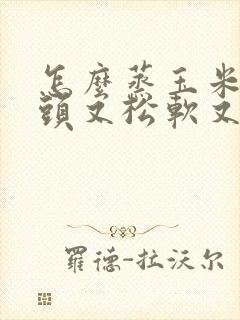 怎麼蒸玉米
頭又松軟又
羅德-拉沃尔